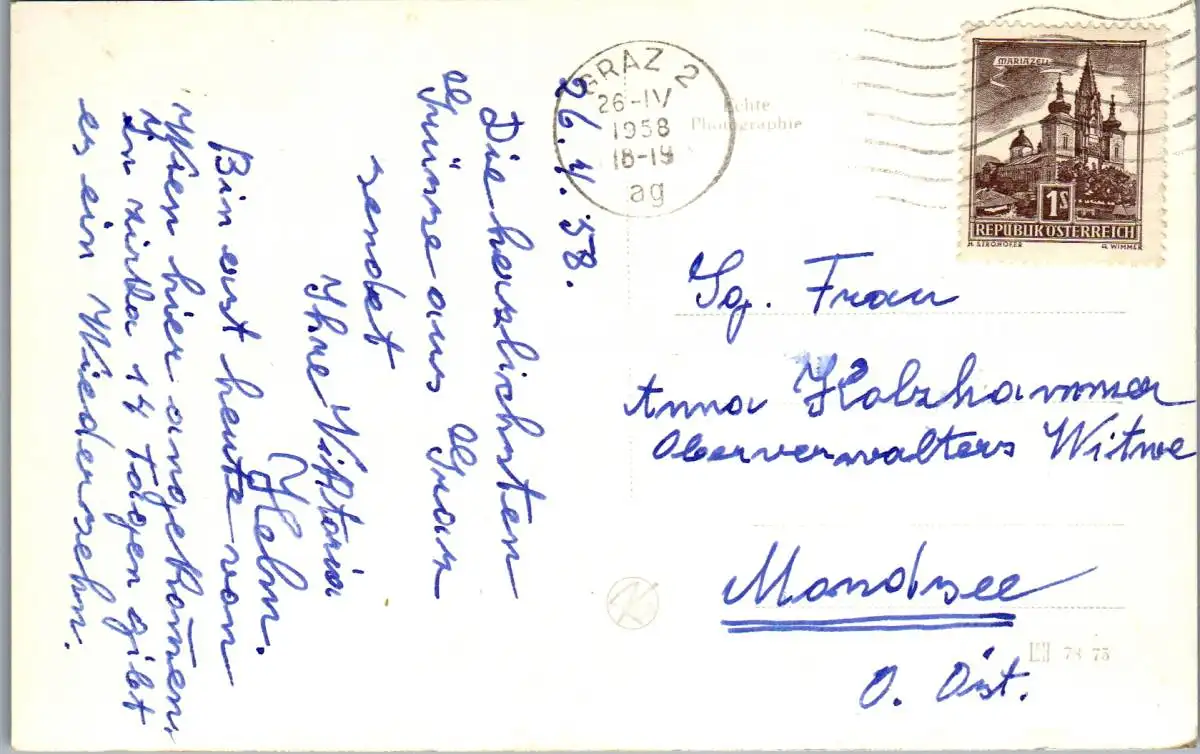 26.4.58.
Die herzlichsten
Grüsse aus Graz
sendet
Ihre Viktoria
Helm.
Bin erst heute von
Wien hier angekommen,
In zirka 14 Tagen gibt
es ein Wiedersehn.
GRAZ 2
26-IV
1958
18-19
ag
Echte
Photographie
MARIAZELL
1S
REPUBLIK ÖSTERREICH
H. STROHOFER
G. WIMMER
Sg. Frau
Anna Holzhammer
Oberverwalters Witwe
Mondsee
O. Öst.
78 75